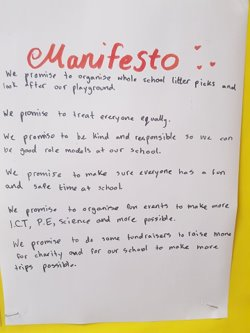 Manifesto
We promise to organise whole school litter picks and
look after our playground.
We promise to treat everyone equally.
We promise to be kind and responsible so we can
be good role models at our school.
We promise to make sure everyone has a fun
and safe time at school
We promise to organise fun events to make more
I.C.T, P.E, Science and more possible.
We promise to do some fundraisers to raise money
for charity and for our school to make more
trips possible.